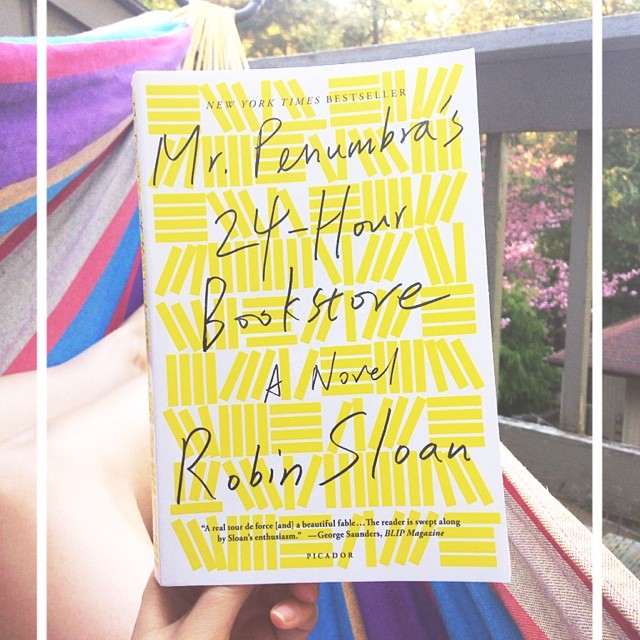 NEW YORK TIMES BESTSELLER
Mr. Penumbra's
24-Hour
Bookstore
A Novel
Robin Sloan
“A real tour de force [and] a beautiful fable…The reader is swept along
by Sloan's enthusiasm.” —George Saunders, BLIP Magazine
PICADOR